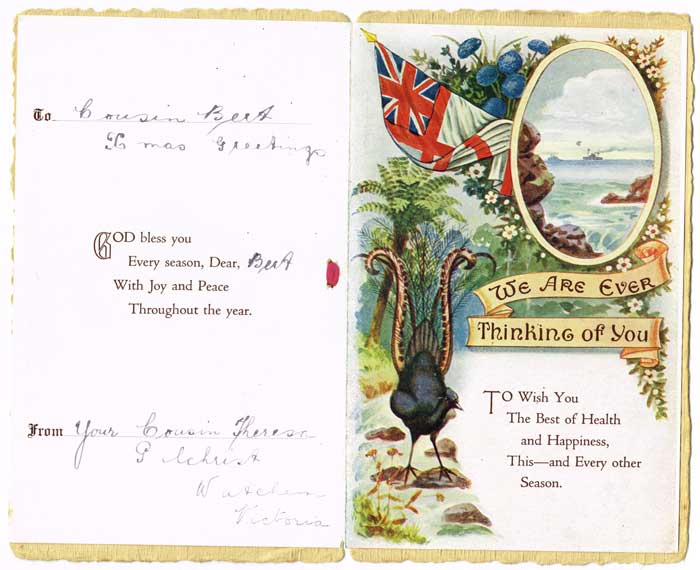 To Cousin Bert
Xmas Greetings
GOD bless you
Every season, Dear, Bert
With Joy and Peace
Throughout the year.
From Your Cousin Theresa
Gilchrist
Watchem
Victoria
WE ARE EVER
THINKING OF YOU
TO WISH YOU
The Best of Health
and Happiness,
This—and Every other
Season.